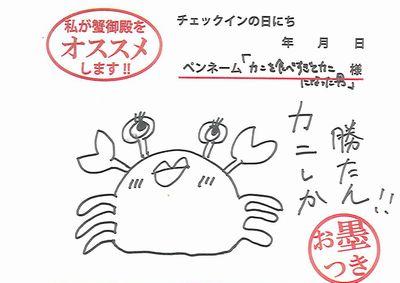 私が蟹御殿を
オススメ
します!!
チェックインの日にち
年 月 日
ペンネーム「カニを食べすぎてカニになった男」様
カニしか
勝たん!!
お墨
つき